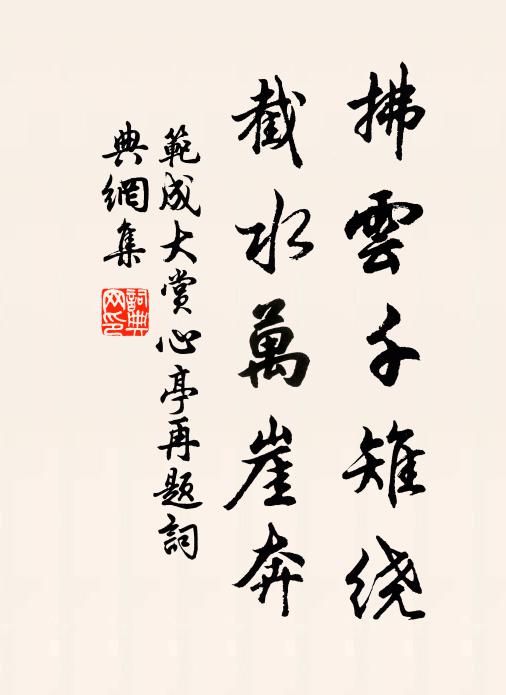 拂雲千雉绕
截水萬崖奔
範成大賞心亭再題詞
典網集
詞典網印